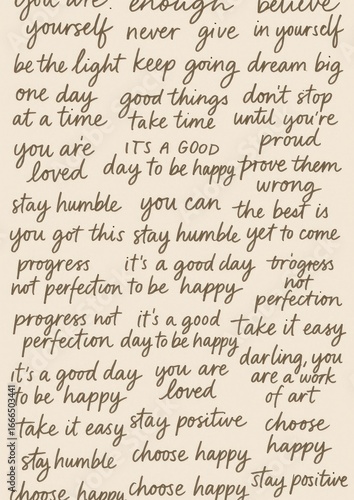 you are. enough believe
yourself never give in yourself
be the light keep going dream big
one day good things don't stop
at a time take time until you're
proud
you are IT'S A GOOD
loved day to be happy prove them
wrong
stay humble you can the best is
you got this stay humble yet to come
progress it's a good day progress
not perfection to be happy not
perfection
progress not it's a good take it easy
perfection day to be happy
darling, you
it's a good day you are are a work
to be happy loved of art
take it easy stay positive choose
happy
stay humble choose happy
choose happy choose happy stay positive
Adobe Stock | #1666503441